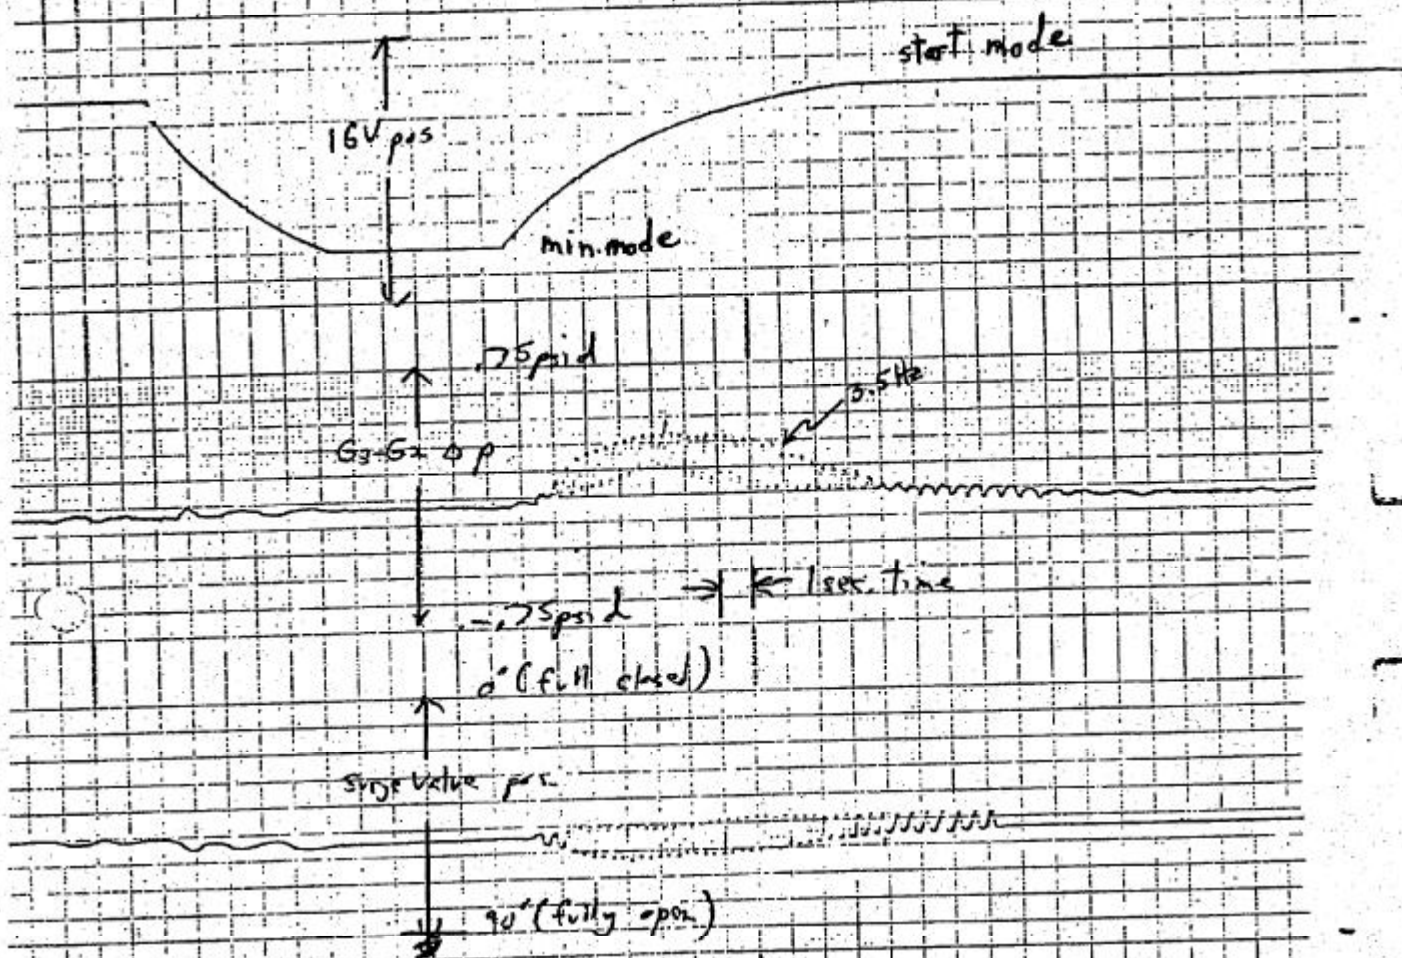 start mode
IGV pos
min.mode
.75psid
3.5Hz
G3-G2 Δ P
1 sec. time
-.75psid
0° (full closed)
surge valve pos.
90° (fully open)